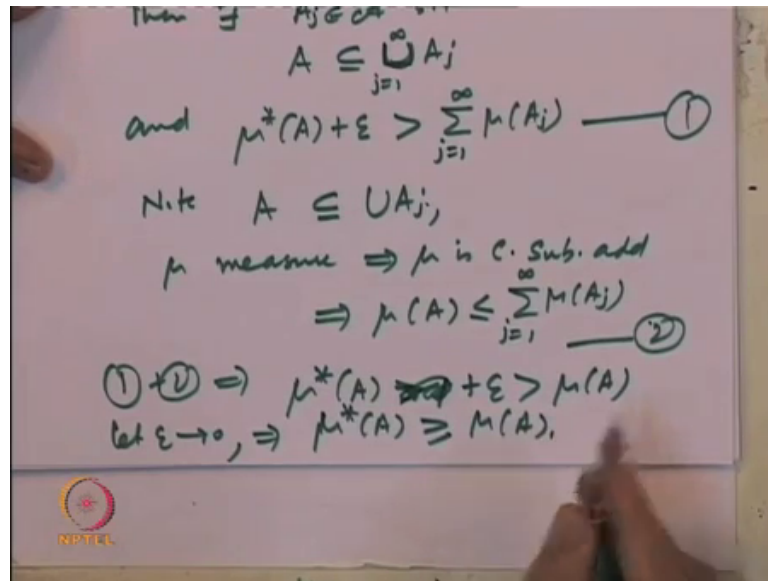 Then if Aj ∈ A
A ⊆ ∞∪j=1 Aj
and μ*(A) + ε > ∞∑j=1 μ(Aj) —— ①
Note A ⊆ ∪Aj,
μ measure ⇒ μ is C. Sub. add
⇒ μ(A) ≤ ∞∑j=1 μ(Aj) —— ②
① + ② ⇒ μ*(A) + ε > μ(A)
let ε → 0, ⇒ μ*(A) ≥ μ(A).
NPTEL